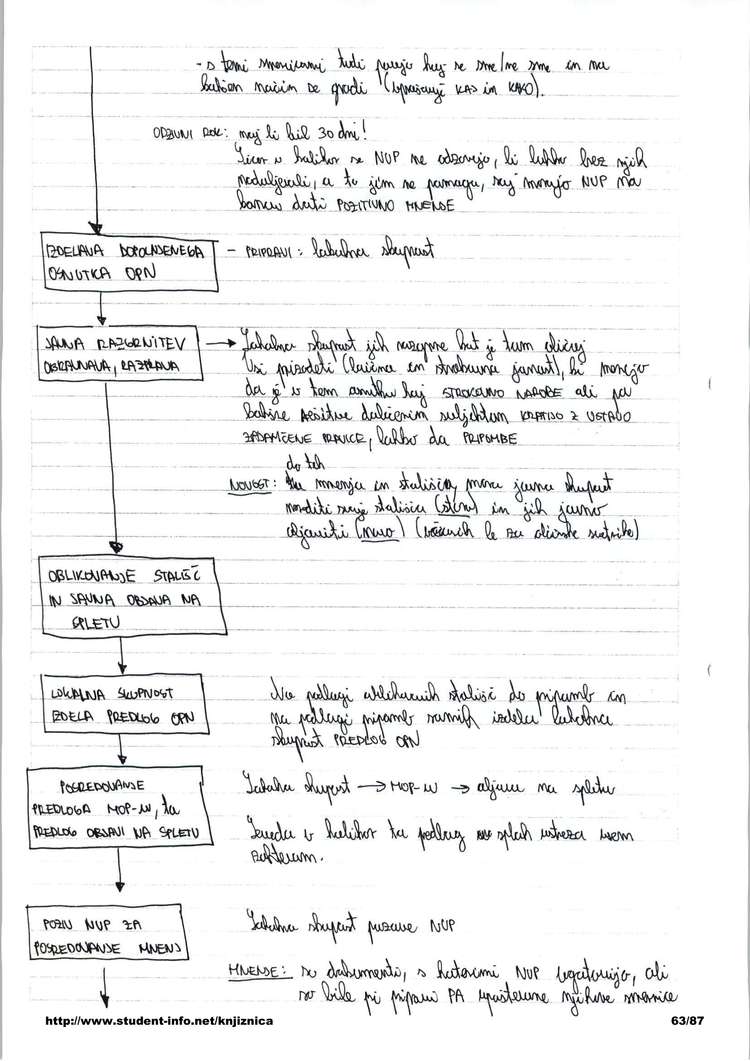 - s temi smernicami tudi povejo kaj se sme/ne sme in na
kakšen način se gradi (vprašanji KAJ in KAKO).
ODZIVNI ROK: naj bi bil 30 dni!
Sicer v kolikor se NUP ne odzovejo, bi lahko brez njih
nadaljevali, a to jim ne pomaga, saj morajo NUP na
koncu dati POZITIVNO MNENJE
IZDELAVA DOPOLNJENEGA - PRIPRAVI: lokalna skupnost
OSNUTKA OPN
JAVNA RAZGRNITEV
OBRAVNAVA, RAZPRAVA
Lokalna skupnost jih razgrne kot je tam običaj
Vsi prizadeti (laična in strokovna javnost), ki menijo
da je v tem osnutku kaj STROKOVNO NAROBE ali pa
kakšne rešitve določenim subjektom KRATIJO Z USTAVO
ZAJAMČENE PRAVICE, lahko da PRIPOMBE
do teh
NOVOST: mnenja in stališča mora javna skupnost
narediti svoja stališča (strani) in jih javno
objaviti (novo) (včasih le za občinske svetnike)
OBLIKOVANJE STALIŠČ
IN JAVNA OBJAVA NA
SPLETU
LOKALNA SKUPNOST
IZDELA PREDLOG OPN
Na podlagi oblikovanih stališč do pripomb in
na podlagi pripomb samih izdela lokalna
skupnost PREDLOG OPN
POSREDOVANJE
PREDLOGA MOP-u, ta
PREDLOG OBJAVI NA SPLETU
Lokalna skupnost → MOP-u → objava na spletu
Seveda v kolikor ta predlog sploh ustreza vsem
zahtevam.
POZIV NUP ZA
POSREDOVANJE MNENJ
Lokalna skupnost pozove NUP
MNENJE: so dokumenti, s katerimi NUP ugotovijo, ali
so bile pri pripravi PA upoštevane njihove smernice
http://www.student-info.net/knjiznica
63/87